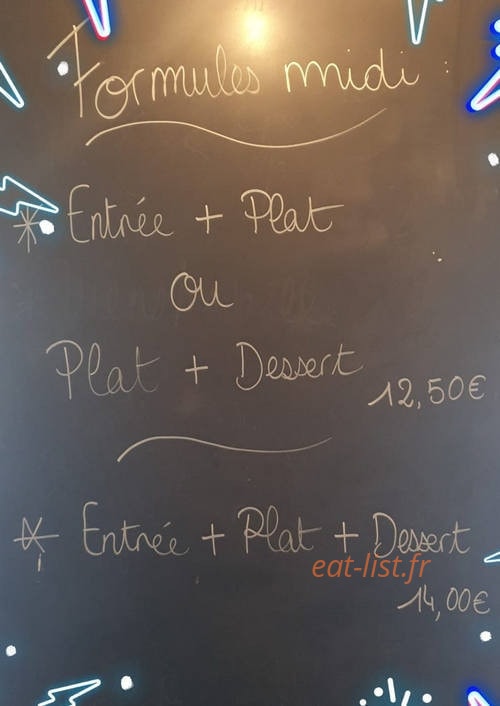 Formules midi :
* Entrée + Plat
ou
Plat + Dessert
12,50€
* Entrée + Plat + Dessert
eat-list.fr
14,00€